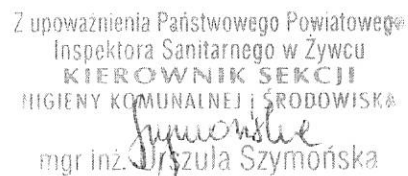 Z upoważnienia Państwowego Powiatowego
Inspektora Sanitarnego w Żywcu
KIEROWNIK SEKCJI
HIGIENY KOMUNALNEJ i ŚRODOWISKA
Szymońska
mgr inż. Urszula Szymońska